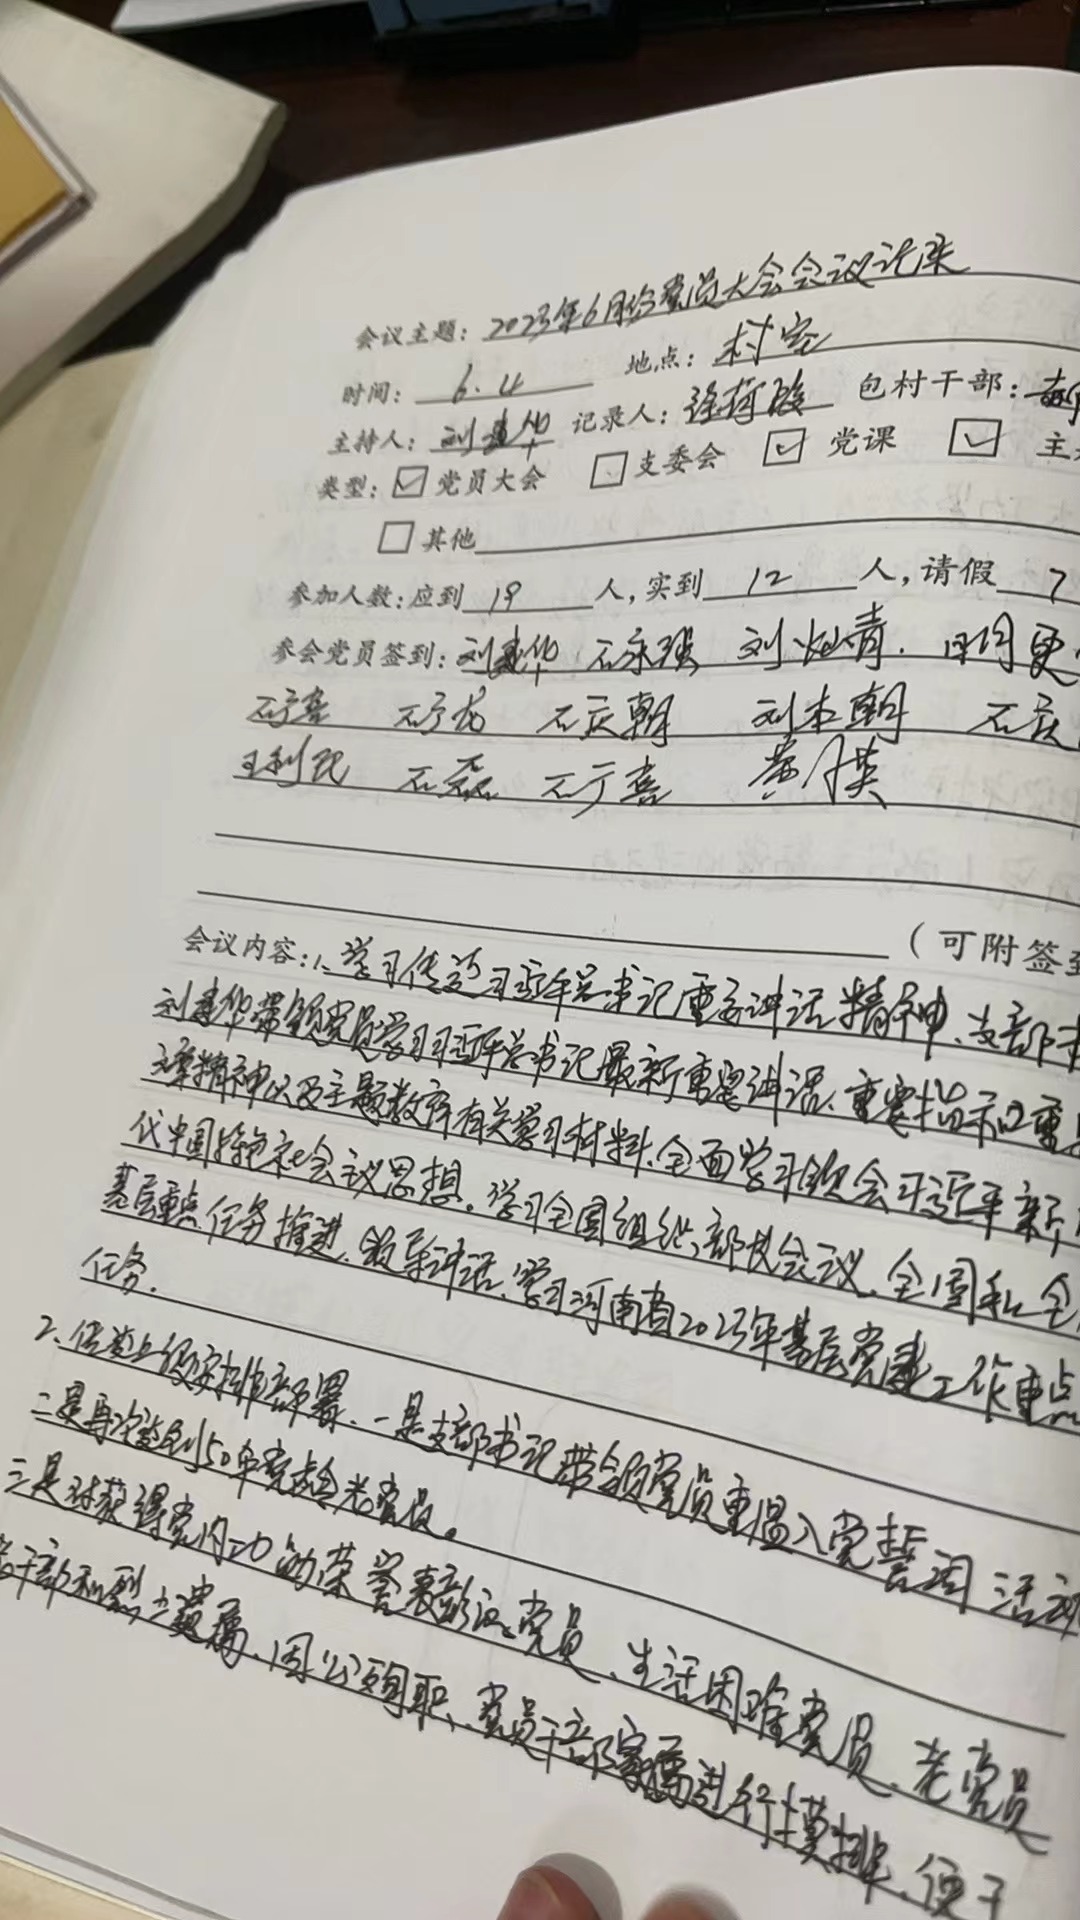 会议主题：2023年6月份党员大会会议记录
时间：6.4 地点：村室
主持人：刘建华 记录人： 包村干部：
类型：☑党员大会 □支委会 ☑党课 ☑主
□其他
参加人数：应到19人，实到12人，请假7
参会党员签到：刘建华 石永强 刘灿青
石庆朝 刘本朝 石庆
石磊 石广喜 黄月英
（可附签到
会议内容：1、学习传达习近平总书记重要讲话精神、支部书
刘建华带领党员学习习近平总书记最新重要讲话、重要指示和重要
文章精神以及主题教育有关学习材料、全面学习领会习近平新时
代中国特色社会议思想。学习全国组织部长会议、全国和全
基层重点任务推进、领导讲话、学习河南省2023年基层党建工作重点
任务.
2、传达上级安排部署、一是支部书记带领党员重温入党誓词活动
二是再次谈到50年党龄老党员。
三是对获得党内功勋荣誉表彰的党员、生活困难党员、老党员
老干部和烈士遗属、因公殉职、党员干部家属进行摸排、便于